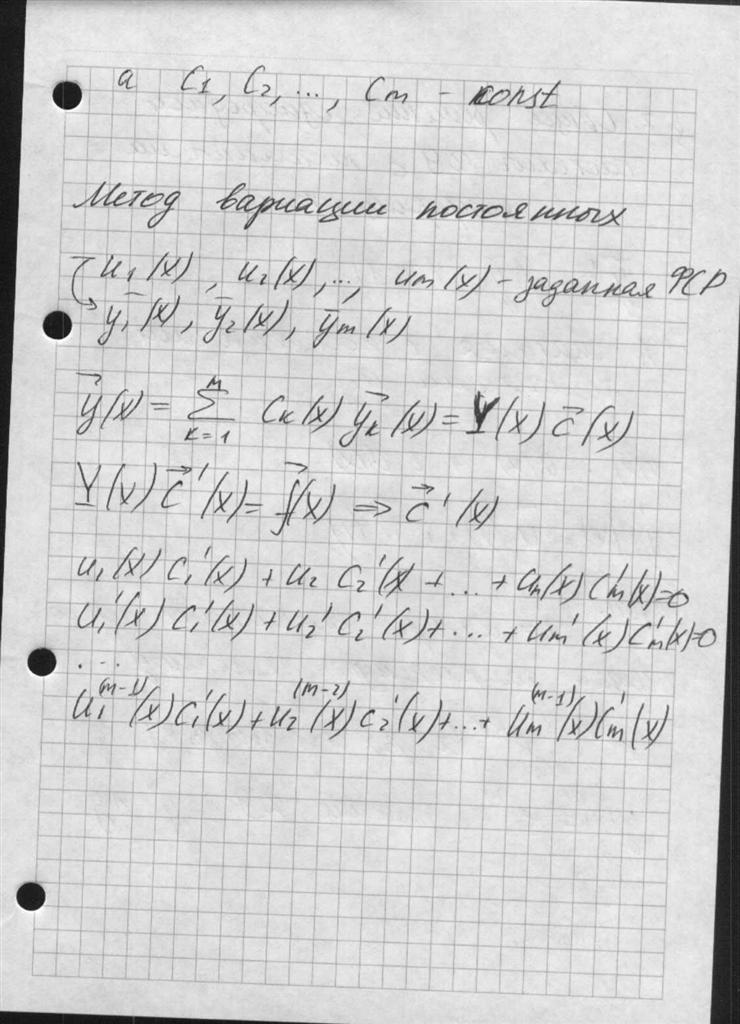 а C₁, C₂, ..., Cm - const
Метод вариации постоянных
u₁(x), u₂(x), ..., um(x) - заданная ФСР
y⃗₁(x), y⃗₂(x), y⃗m(x)
y⃗(x) = ∑ₖ₌₁ᵐ Cₖ(x) y⃗ₖ(x) = Y(x) c⃗(x)
Y(x) c⃗'(x) = f⃗(x) ⇒ c⃗'(x)
u₁(x) C₁'(x) + u₂ C₂'(x + ... + um(x) Cm'(x)=0
u₁'(x) C₁'(x) + u₂' C₂'(x) + ... + um'(x) Cm'(x)=0
...
u₁⁽ᵐ⁻¹⁾(x) C₁'(x) + u₂⁽ᵐ⁻²⁾(x) C₂'(x) + ... + um⁽ᵐ⁻¹⁾(x) Cm'(x)